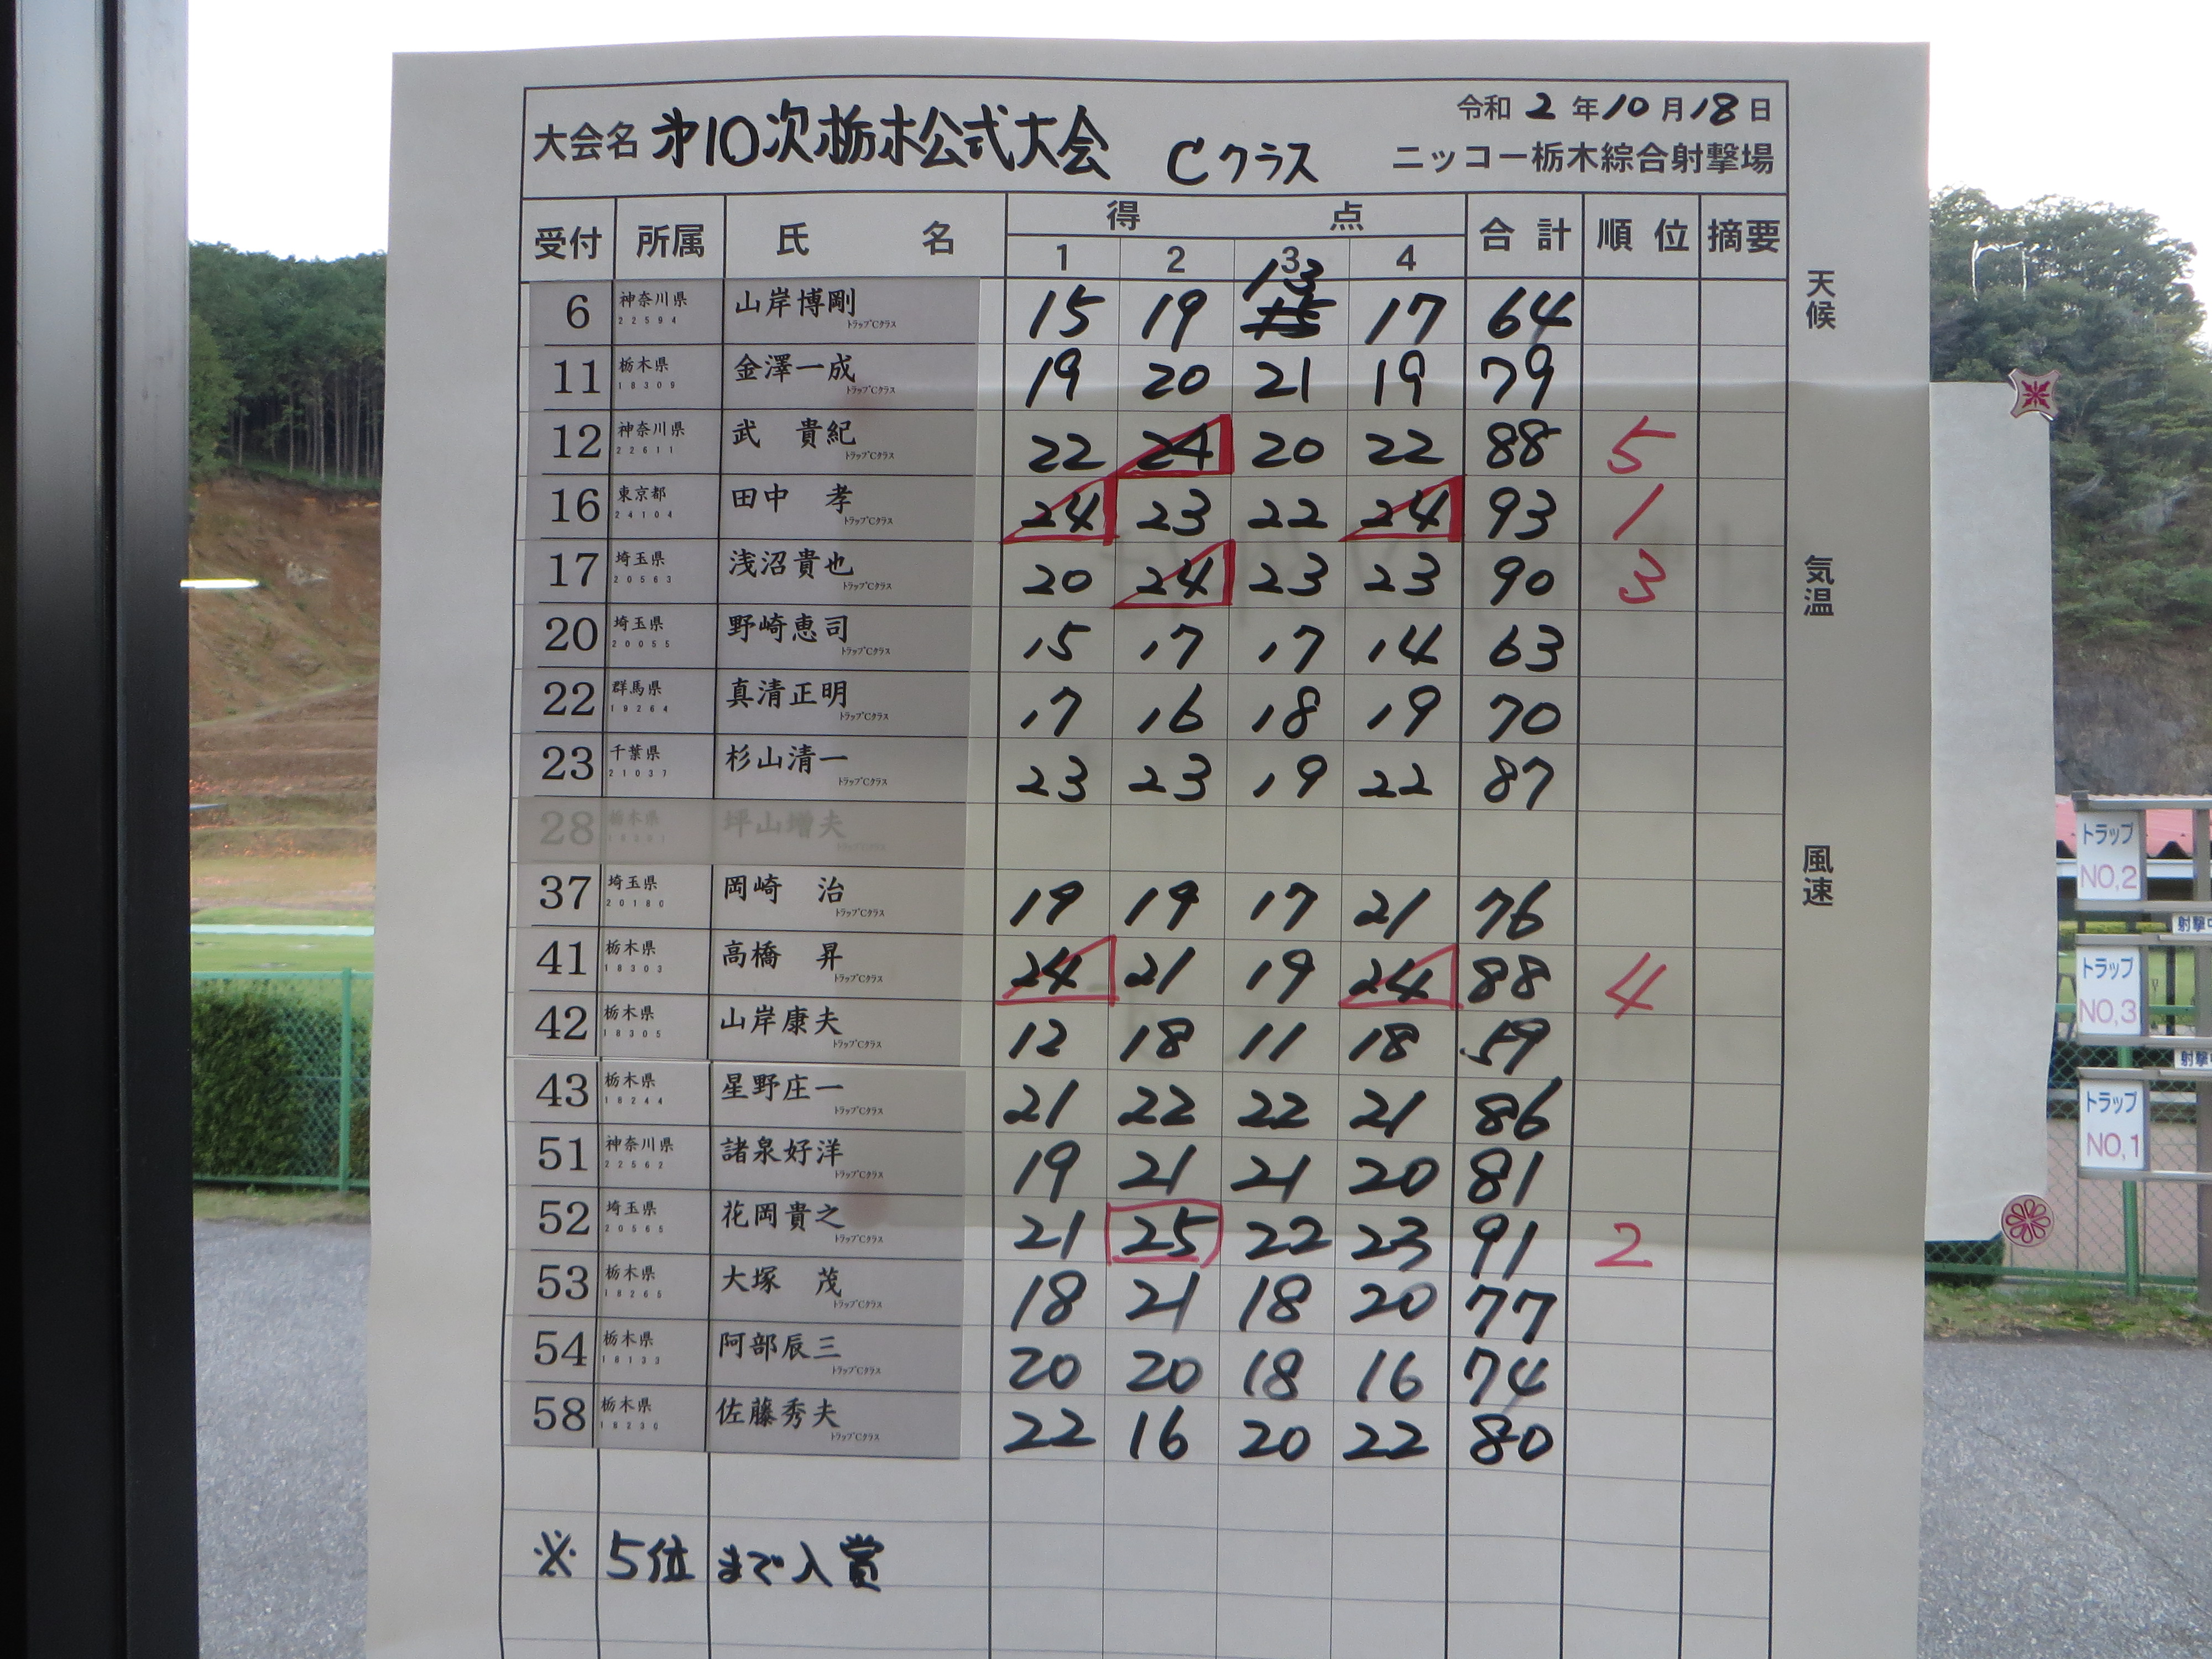 令和 2 年 10 月 18 日
大会名 第10次栃木公式大会 Cクラス ニッコー栃木綜合射撃場
受付 所属 氏 名 得 点 合 計 順 位 摘要
1 2 3 4
6 神奈川県 22594 山岸博剛 トラップCクラス 15 19 13 17 64
11 栃木県 18309 金澤一成 トラップCクラス 19 20 21 19 79
12 神奈川県 22611 武 貴紀 トラップCクラス 22 24 20 22 88 5
16 東京都 24104 田中 孝 トラップCクラス 24 23 22 24 93 1
17 埼玉県 20563 浅沼貴也 トラップCクラス 20 24 23 23 90 3
20 埼玉県 20055 野崎恵司 トラップCクラス 15 17 17 14 63
22 群馬県 19264 真清正明 トラップCクラス 17 16 18 19 70
23 千葉県 21037 杉山清一 トラップCクラス 23 23 19 22 87
28 栃木県 坪山増夫
37 埼玉県 20180 岡崎 治 トラップCクラス 19 19 17 21 76
41 栃木県 18303 高橋 昇 トラップCクラス 24 21 19 24 88 4
42 栃木県 18305 山岸康夫 トラップCクラス 12 18 11 18 59
43 栃木県 18244 星野庄一 トラップCクラス 21 22 22 21 86
51 神奈川県 22562 諸泉好洋 トラップCクラス 19 21 21 20 81
52 埼玉県 20565 花岡貴之 トラップCクラス 21 25 22 23 91 2
53 栃木県 18265 大塚 茂 トラップCクラス 18 21 18 20 77
54 栃木県 18133 阿部辰三 トラップCクラス 20 20 18 16 74
58 栃木県 18230 佐藤秀夫 トラップCクラス 22 16 20 22 80
※ 5位まで入賞
天候
気温
風速
トラップ
NO,2
射撃中
トラップ
NO,3
射撃中
トラップ
NO,1